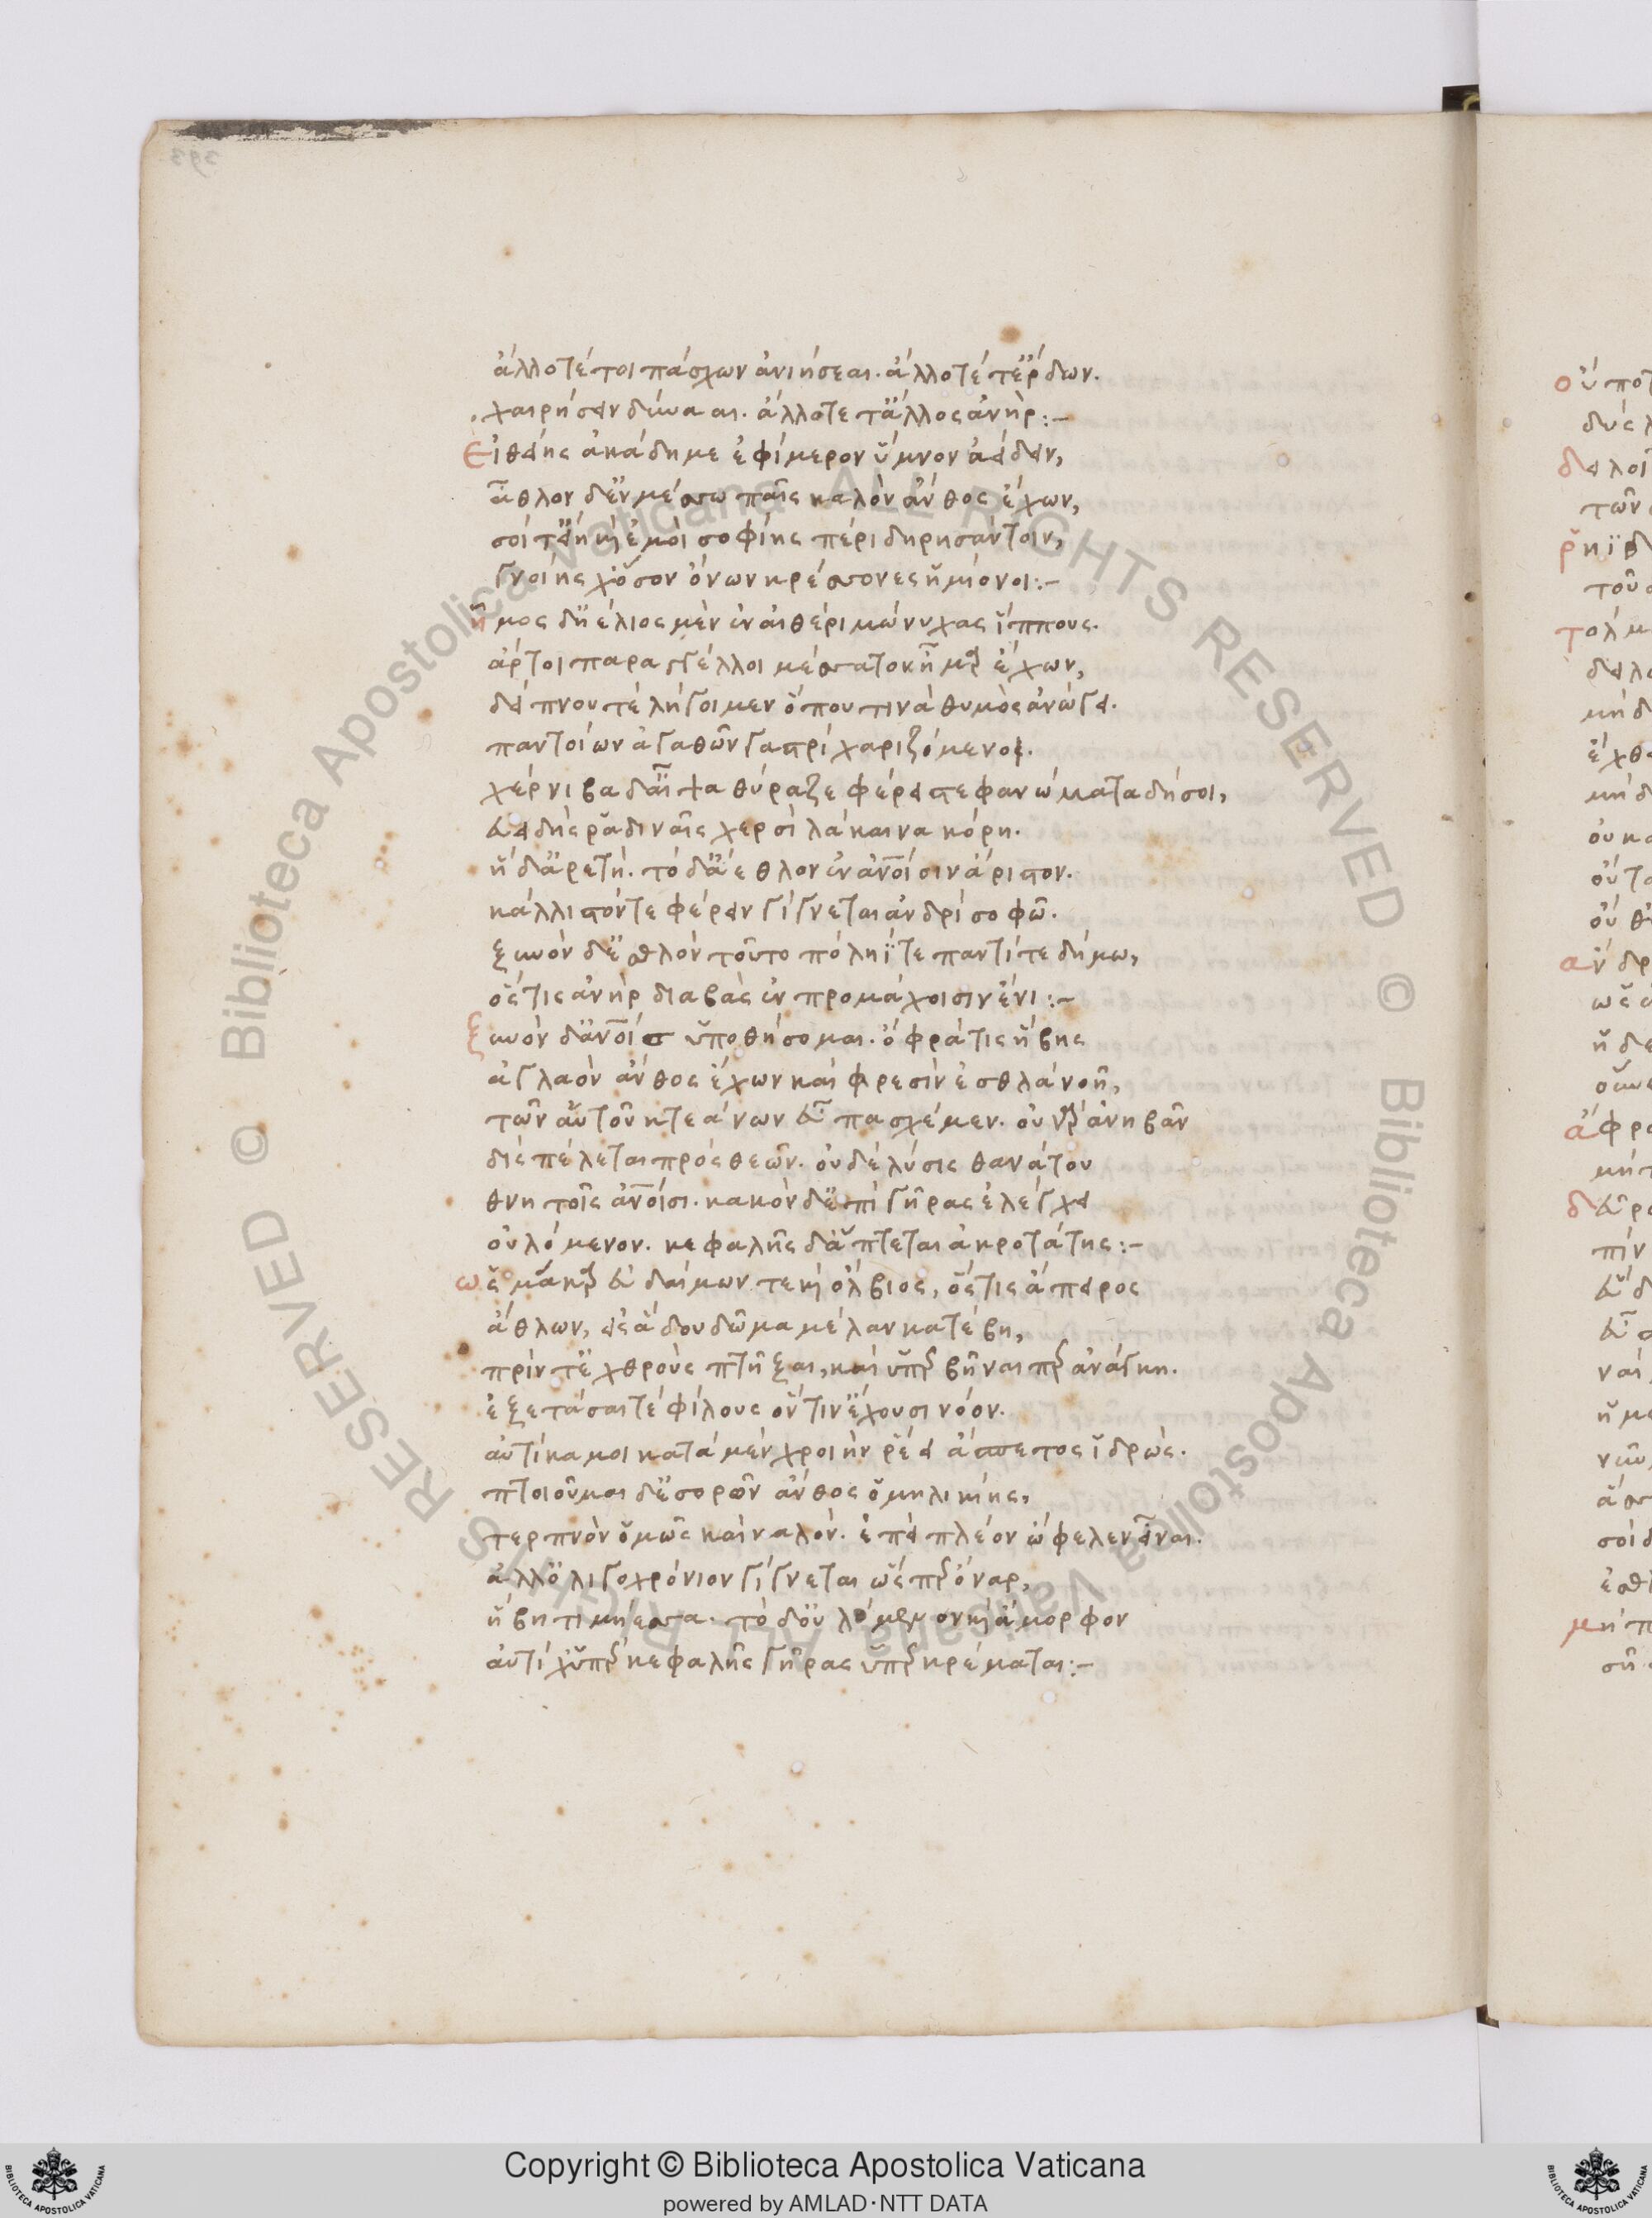 ἄλλοτέ τοι πάσχων ἀνιήσεαι. ἄλλοτέ τ' ἔρδων.
χαιρήσειν δύνααι. ἄλλοτε τ' ἄλλος ἀνήρ:-
Εἰθείης ἀκάδημε ἐφίμερον ὕμνον ἀείδειν,
ἆθλον δ' ἐν μέσσω παῖς καλὸν ἄνθος ἔχων,
σοί τ' εἴη κὴ ἐμοὶ σοφίης πέρι δηρησάντοιν,
γνοίης χ' ὅσον ὄνων κρέσσονες ἡμίονοι:-
ἦμος δ' ἠέλιος μὲν ἐν αἰθέρι μώνυχας ἵππους.
ἄρτοι παραγγέλλοι μέσσατον ἦμαρ ἔχων,
δείπνου τέ λήγοιμεν ὅπου τινὰ θυμὸς ἀνώγει.
παντοίων ἀγαθῶν γαστρί χαριζόμενοι.
χέρνιβα δ' αἶψα θύραζε φέρει στεφανώματα δ' ἤσοι,
εὐειδὴς ῥαδιναῖς χερσὶ λάκαινα κόρη.
ἥδ' ἀρετή. τό δ' ἄεθλον ἐν ἀνοίσιν ἄριστον.
κάλλιστόν τε φέρειν γίγνεται ἀνδρί σοφῶ.
ξυνὸν δ' ἐσθλὸν τοῦτο πόληΐ τε παντί τε δήμω,
ὅστις ἀνὴρ διαβὰς ἐν προμάχοισιν ἔνι:-
ξυνὸν δ' ἀνοίσ ὑποθήσομαι. ὄφρά τις ἥβης
ἀγλαὸν ἄνθος ἔχων καὶ φρεσὶν ἐσθλὰ νοῆ,
τῶν αὑτοῦ κτεάνων εὖ πασχέμεν. οὐ γὰρ ἀνηβᾶν
δὶς πέλεται πρός θεῶν. οὐδέ λύσις θανάτου
θνητοῖς ἀνοίσι. κακὸν δ' ἐπί γῆρας ἐλέγχει
οὐλόμενον. κεφαλῆς δ' ἅπτεται ἀκροτάτης:-
ὡς μάκαρ εὐδαίμων τε κὴ ὄλβιος, ὅστις ἄπειρος
ἄθλων, εἰς ἅδου δῶμα μέλαν κατέβη,
πρίν τ' ἐχθροὺς πτῆξαι, καὶ ὑπερβῆναι περ ἀνάγκη.
ἐξετάσαι τέ φίλους ὅντιν' ἔχουσι νόον.
αὐτίκα μοι κατά μὲν χροιὴν ῥέει ἄσπετος ἱδρώς.
πτοιοῦμαι δ' ἐσορῶν ἄνθος ὁμηλικίης,
τερπνὸν ὁμῶς καὶ καλόν. ἐπεὶ πλέον ὤφελεν εἶναι.
ἀλλ' ὀλιγοχρόνιον γίγνεται ὥσπερ ὄναρ,
ἥβη τιμήεσσα. τὸ δ' οὐλόμενον κὴ ἄμορφον
αὐτίχ' ὑπὲρ κεφαλῆς γῆρας ὑπερκρέμαται:-
Copyright © Biblioteca Apostolica Vaticana
powered by AMLAD·NTT DATA